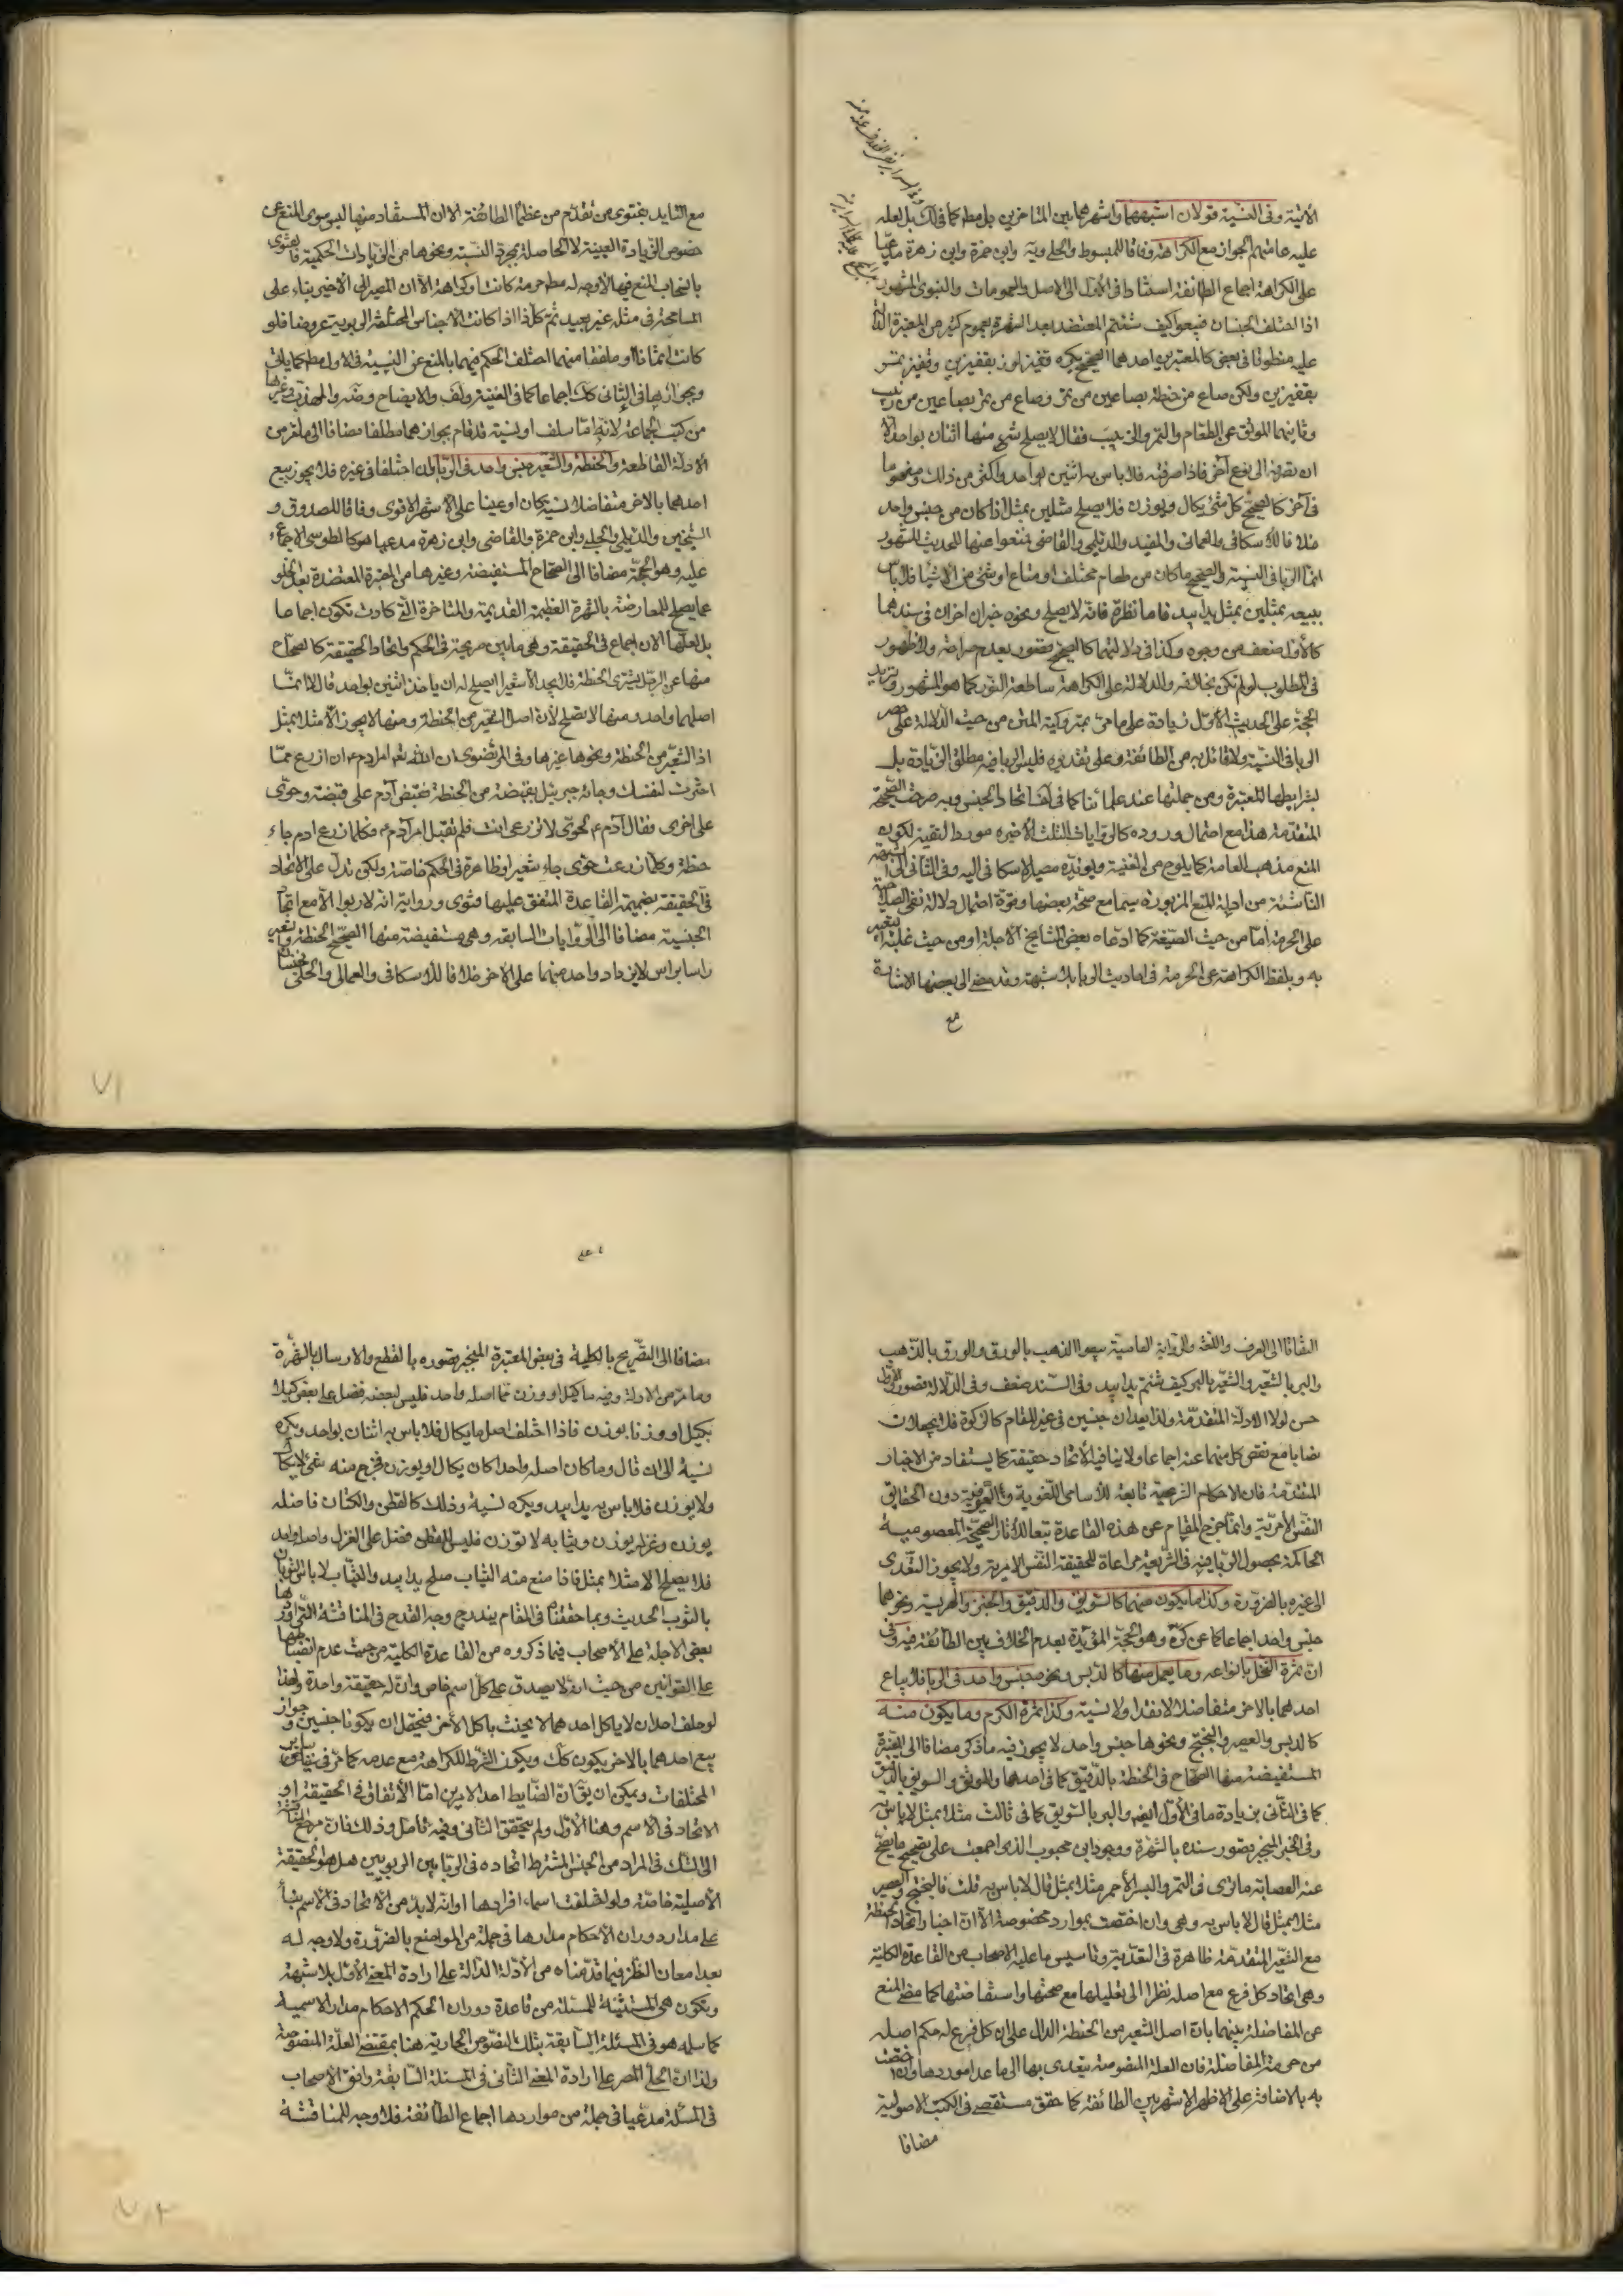 الآتية وفى النسية قولان اشبههما واشهرهما بين المتاخرين بل مطم كما فى لك بل لعله
عليه عامتهم الجواز مع الكراهة وفاقا للمبسوط والحلى ويه وابن حمزة وابن زهرة مدعيا
على الكراهة اجماع الطائفة استنادا فى الاول الى الاصل والعمومات والنبوى المشهور
اذا اختلف الجنسان فبيعوا كيف شئتم المعتضد بعد الشهرة بعموم كثير من المعتبرة الدالة
عليه منطوقا فى بعض كالمعتبرين احدهما الصحيح يكره قفيز لوز بقفيزين وقفيز تمر
بقفيزين ولكن صاع من حنطة بصاعين من تمر وصاع من تمر بصاعين من زبيب
وثانيهما الموثق عن الطعام والتمر والزبيب فقال لا يصلح شئ منها اثنان بواحد الا
ان تصرفه الى نوع آخر فاذا صرفته فلا باس به اثنين بواحد واكثر من ذلك ومفهوما
فى آخر كالصحيح كل شئ يكال او يوزن فلا يصلح مثلين بمثل اذا كان من جنس واحد
خلافا للاسكافى والعمانى والمفيد والديلمى والقاضى فمنعوا عنها للحديث المشهور
انما الربا فى النسية والصحيح ما كان من طعام مختلف او متاع او شئ من الاشيا فلا باس
ببيعه بمثلين بمثل يدا بيد فاما نظرة فانه لا يصلح ونحوه خبران اخران فى سندهما
كالاول ضعف من وجوه وكذا فى دلالتهما كالصحيح قصور بعدم صراحة ولا ظهور
فى المطلوب لو لم تكن بخلافه والدلالة على الكراهة ساطعة النور كما هو المشهور وتزيد
الحجة على الحديث الاول زيادة على ما مر بمتروكية المتن من حيث الدلالة على حصر
الربا فى النسية ولا قائل به من الطائفة وعلى تقديره فليس الربا فيه مطلق الزيادة بل
بشرايطها المعتبرة ومن جملتها عند علمائنا كما فى لف اتحاد الجنس وبه صرحت الصحيحة
المتقدمة هذا مع احتمال وروده كالروايات الثلث الاخيره مورد التقية لكون
المنع مذهب العامة كما يلوح من الغنية ويؤيده مصير الاسكافى اليه وفى الثانى الى الشبهة
الناشئة من ادلة المنع المزبورة سيما مع صحة بعضها وقوة احتمال دلالة نفى الصلاحية
على الحرمة اما من حيث الصيغة كما ادعاه بعض المشايخ الاجلة او من حيث غلبة التعبير
به وبلفظ الكراهة عن الحرمة فى احاديث الربا بلا شبهة وقد مضى الى بعضها الاشارة
مع
مع التاييد بفتوى من تقدم من عظماء الطائفة الا ان المستفاد منها ليس سوى المنع عن
خصوص الزيادة العينية لا الحاصلة بمجرد النسية ونحوها من الزيادات الحكمية فالفتوى
بانسحاب المنع فيها لا وجه له مطم حرمة كانت او كراهة الا ان المصير الى الاخير بناء على
المسامحة فى مثله غير بعيد ثم كل ذا اذا كانت الاجناس المختلفة الربوية عروضا فلو
كانت اثمانا او ملفقا منهما اختلف الحكم فيهما بالمنع عن النسية فى الاول مطم كما ياتى
وبجوازها فى الثانى كك اجماعا كما فى الغنية ولف والايضاح وضه والمهذب وغيرها
من كتب الجماعة لانه اما سلف او نسية قد قام بجوازهما مطلقا مضافا الى ما مر من
الادلة القاطعة والحنطة والشعير جنس واحد فى الربا وان اختلفا فى غيره فلا يجوز بيع
احدهما بالاخر متفاضلا نسية كان او عينا على الاشهر الاقوى وفاقا للصدوق و
الشيخين والديلمى والحلبى وابن حمزة والقاضى وابن زهرة مدعيا هو كالطوسى الاجماع
عليه وهو الحجة مضافا الى الصحاح المستفيضة وغيرها من المعتبرة المعتضدة بعد الخلو
عما يصلح للمعارضة بالشهرة العظيمة القديمة والمتاخرة التى كادت تكون اجماعا
بل لعلها الان اجماع فى الحقيقة وهى ما بين صريحة فى الحكم واتحاد الحقيقة كالصحاح
منها عن الرجل يشترى الحنطة فلا يجد الا شعيرا ايصلح له ان ياخذ اثنين بواحد قال لا انما
اصلهما واحد ومنها لا يصلح لان اصل الشعير من الحنطة ومنها لا يجوز الا مثلا بمثل
اذ الشعير من الحنطة ونحوها غيرها وفى المرتضوى ان الله تعم امر ادم ع ان ازرع مما
اخترت لنفسك وجائه جبرئيل بقبضة من الحنطة فقبض آدم على قبضة وحوى
على اخرى فقال آدم ع لحوى لا تزرعى انت فلم تقبل امر آدم ع فكلما زرع ادم جاء
حنطة وكلما زرعت حوى جاء شعيرا وظاهرة فى الحكم خاصة ولكن تدل على الاتحاد
فى الحقيقة بضميمة القاعدة المتفق عليها فتوى ورواية انه لا ربوا الا مع اتحاد
الجنسية مضافا الى الروايات السابقه وهى مستفيضة منها الصحيح الحنطة والشعير
راسا براس لا يزداد واحد منهما على الاخر خلافا للاسكافى والعمانى والحلى فجنسان
٧١
التفاتا الى العرف واللغة والرواية العامية بيعوا الذهب بالورق والورق بالذهب
والبر بالشعير والشعير بالبر كيف شئتم يدا بيد وفى السند ضعف وفى الدلالة قصور والاول
حسن لولا الادلة المتقدمة ولذا يعدان جنسين فى غير المقام كالزكوة فلا يجعلان
نصابا مع نقص كل منهما عنه اجماعا ولا ينافيه الاتحاد حقيقة كما يستفاد من الاخبار
المتقدمة فان الاحكام الشرعية تابعة للاسامى اللغوية والعرفية دون الحقايق
النفس الامرية وانما خرج المقام عن هذه القاعدة تبعا للاثار الصحيحة المعصومية
الحاكمة بحصول الربا فيه فى الشريعة مراعاة للحقيقة النفس الامرية ولا يجوز التعدى
الى غيره بالضرورة وكذا ما يكون منهما كالسويق والدقيق والخبز والهريسة ونحوهما
جنس واحد اجماعا كما عن كرة وهو الحجة المؤيدة بعدم الخلاف بين الطائفة فيه وفى
ان ثمرة النخل بانواعه وما يعمل منها كالدبس ونحوه جنس واحد فى الربا فلا يباع
احدهما بالاخر متفاضلا لا نقدا ولا نسية وكذا ثمرة الكرم وما يكون منه
كالدبس والعصير والبختج ونحوها جنس واحد لا يجوز فيه ما ذكر مضافا الى المعتبرة
المستفيضة منها الصحاح فى الحنطة بالدقيق كما فى احدهما والموثق والسويق بالدقيق
كما فى الثانى بزيادة ما فى الاول ايضه والبر بالسويق كما فى ثالث مثلا بمثل لا باس به
وفى الخبر المنجبر قصور سنده بالشهرة ووجود ابن محبوب الذى اجمعت على تصحيح ما يصح
عنه العصابة ما ترى فى التمر والبسر الاحمر مثلا بمثل قال لا باس به قلت فالبختج والعصير
مثلا بمثل قال لا باس به وهى وان اختصت بموارد مخصوصة الا ان اخبار اتحاد الحنطة
مع الشعير المتقدمة ظاهرة فى التعدية وتاسيس ما عليه الاصحاب من القاعدة الكلية
وهى اتحاد كل فرع مع اصله نظرا الى تعليلها مع صحتها واستفاضتها كما مضى المنع
عن المفاضلة بينهما بان اصل الشعير من الحنطة الدال على ان كل فرع له حكم اصله
من حرمة المفاضلة فان العلة المنصوصة يتعدى بها الى ما عدا موردها وان اختصت
به بالاضافة على الاظهر الاشهر بين الطائفة كما حقق مستقصى فى الكتب الاصولية
مضافا
مضافا الى التصريح بالكلية فى بعض المعتبرة المنجبر قصوره بالقطع والارسال بالشهرة
وما مر من الادلة وفيه ما كيل او وزن مما اصله واحد فليس لبعضه فضل على بعض كيلا
بكيل او وزنا بوزن فاذا اختلف اصل ما يكال فلا باس به اثنان بواحد ويكره
نسية الى ان قال وما كان اصله واحدا كان يكال او يوزن فخرج منه شئ لا يكال
ولا يوزن فلا باس به يدا بيد ويكره نسية وذلك كالقطن والكتان فاصله
يوزن وغزله يوزن وثيابه لا توزن فليس للقطن فضل على الغزل واصله واحد
فلا يصلح الا مثلا بمثل فاذا صنع منه الثياب صلح يدا بيد والثياب لا باس الثوبان
بالثوب الحديث وبما حققنا فى المقام يندرج وجه القدح فى المناقشة التى اوردها
بعض الاجلة على الاصحاب فيما ذكروه من القاعدة الكلية من حيث عدم انضباطها
على القوانين من حيث انه لا يصدق على كل اسم خاص وان له حقيقة واحدة ولهذا
لو حلف احد ان لا ياكل احدهما لا يحنث باكل الآخر فيحتمل ان يكونا جنسين وجواز
بيع احدهما بالاخر يكون كك ويكون الشرط للكراهة مع عدمه كما مر فى ساير
المختلفات ويمكن ان يق ان الضابط احد الامرين اما الاتفاق فى الحقيقة او
الاتحاد فى الاسم وهنا الاول ولم يتحقق الثانى وفيه تامل وذلك فان مرجع المناقشة
الى الشك فى المراد من الجنس المشترط اتحاده فى الربا بين الربويين هل هو الحقيقة
الاصلية خاصة ولو اختلفت اسماء افرادها او انه لا بد من الاتحاد فى الاسم بناء
على مدار دوران الاحكام مدارها فى جملة من المواضع بالضرورة ولا وجه له
بعد امعان النظر فيما قدمناه من الادلة الدالة على ارادة المعنى الاول بلا شبهة
وتكون هى المستثنية للمسئلة من قاعدة دوران الحكم الاحكام مدار الاسمية
كما سلمه هو فى المسئلة السابقة بتلك النصوص الجارية هنا بمقتضى العلة المنصوصة
ولذا ان الحلى المصر على ارادة المعنى الثانى فى المسئلة السابقة وافق الاصحاب
فى المسئلة مدعيا فى جملة من مواردها اجماع الطائفة فلا وجه للمناقشة